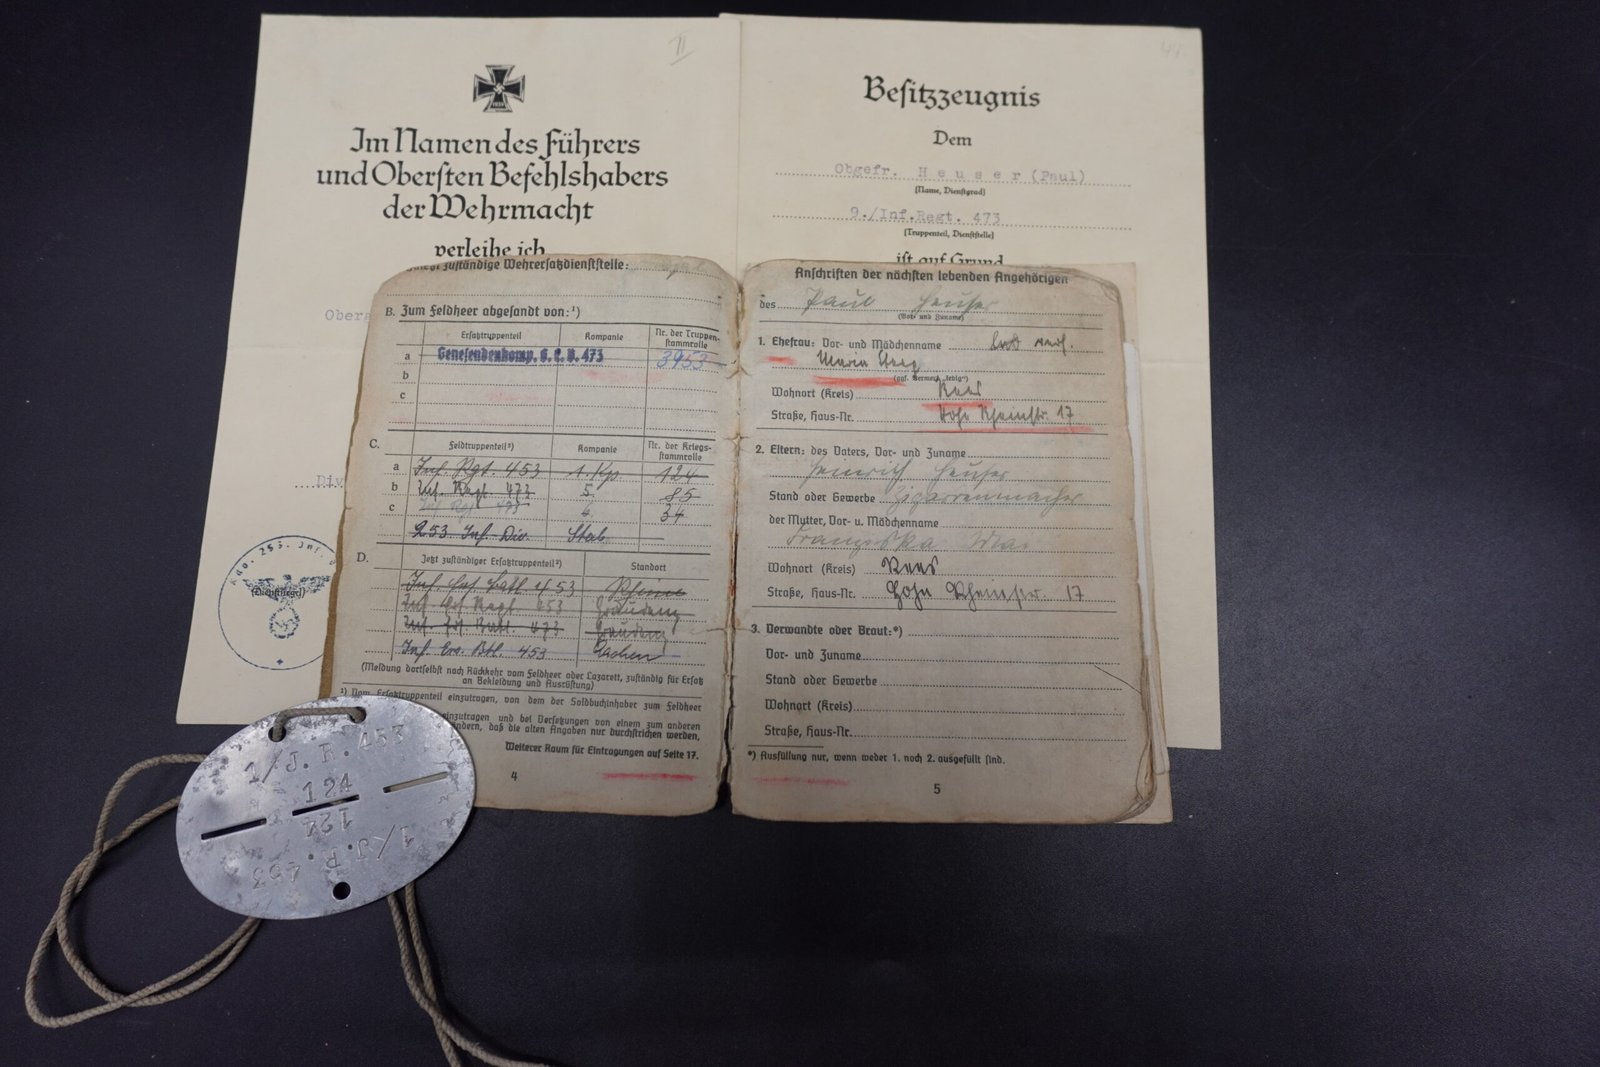 II
1939
Im Namen des Führers
und Obersten Befehlshabers
der Wehrmacht
verleihe ich
Obera
Div
Kdo. 253. Inf.
(Dienstsiegel)
44
Besitzzeugnis
Dem
Obgefr. Heuser (Paul)
(Name, Dienstgrad)
9./Inf.Regt. 473
(Truppenteil, Dienststelle)
ist auf Grund
zuständige Wehrersatzdienststelle:
B. Zum Feldheer abgesandt von:¹)
Ersatztruppenteil Kompanie Nr. der Truppen-
stammrolle
a Genesendenkomp. 473 3953
b
c
C. Feldtruppenteil²) Kompanie Nr. der Kriegs-
stammrolle
a Inf. Rgt. 453 1. Kp. 124
b Inf. Regt. 473 5. 85
c 34
253. Inf. Div. Stab
D. Jetzt zuständiger Ersatztruppenteil²) Standort
Inf. Ers. Batl. 453 Rheine
Inf. Ers. Regt. 253 Graudenz
Inf. Ers. Batl. 473 Graudenz
Inf. Ers. Btl. 453 Aachen
(Meldung dortselbst nach Rückkehr vom Feldheer oder Lazarett, zuständig für Ersatz
an Bekleidung und Ausrüstung)
¹) Vom Ersatztruppenteil einzutragen, von dem der Soldbuchinhaber zum Feldheer
einzutragen und bei Versetzungen von einem zum anderen
ändern, daß die alten Angaben nur durchstrichen werden,
Weiterer Raum für Eintragungen auf Seite 17.
4
Anschriften der nächsten lebenden Angehörigen
des Paul Heuser
(Vor- und Zuname)
1. Ehefrau: Vor- und Mädchenname
Maria
Wohnort (Kreis) Rees
Straße, Haus-Nr. Hohe Rheinstr. 17
2. Eltern: des Vaters, Vor- und Zuname
Heinrich Heuser
Stand oder Gewerbe Zigarrenmacher
der Mutter, Vor- u. Mädchenname
Franziska
Wohnort (Kreis) Rees
Straße, Haus-Nr. Hohe Rheinstr. 17
3. Verwandte oder Braut:*)
Vor- und Zuname
Stand oder Gewerbe
Wohnort (Kreis)
Straße, Haus-Nr.
*) Ausfüllung nur, wenn weder 1. noch 2. ausgefüllt sind.
5
1/J.R.453
124
124
1/J.R.453